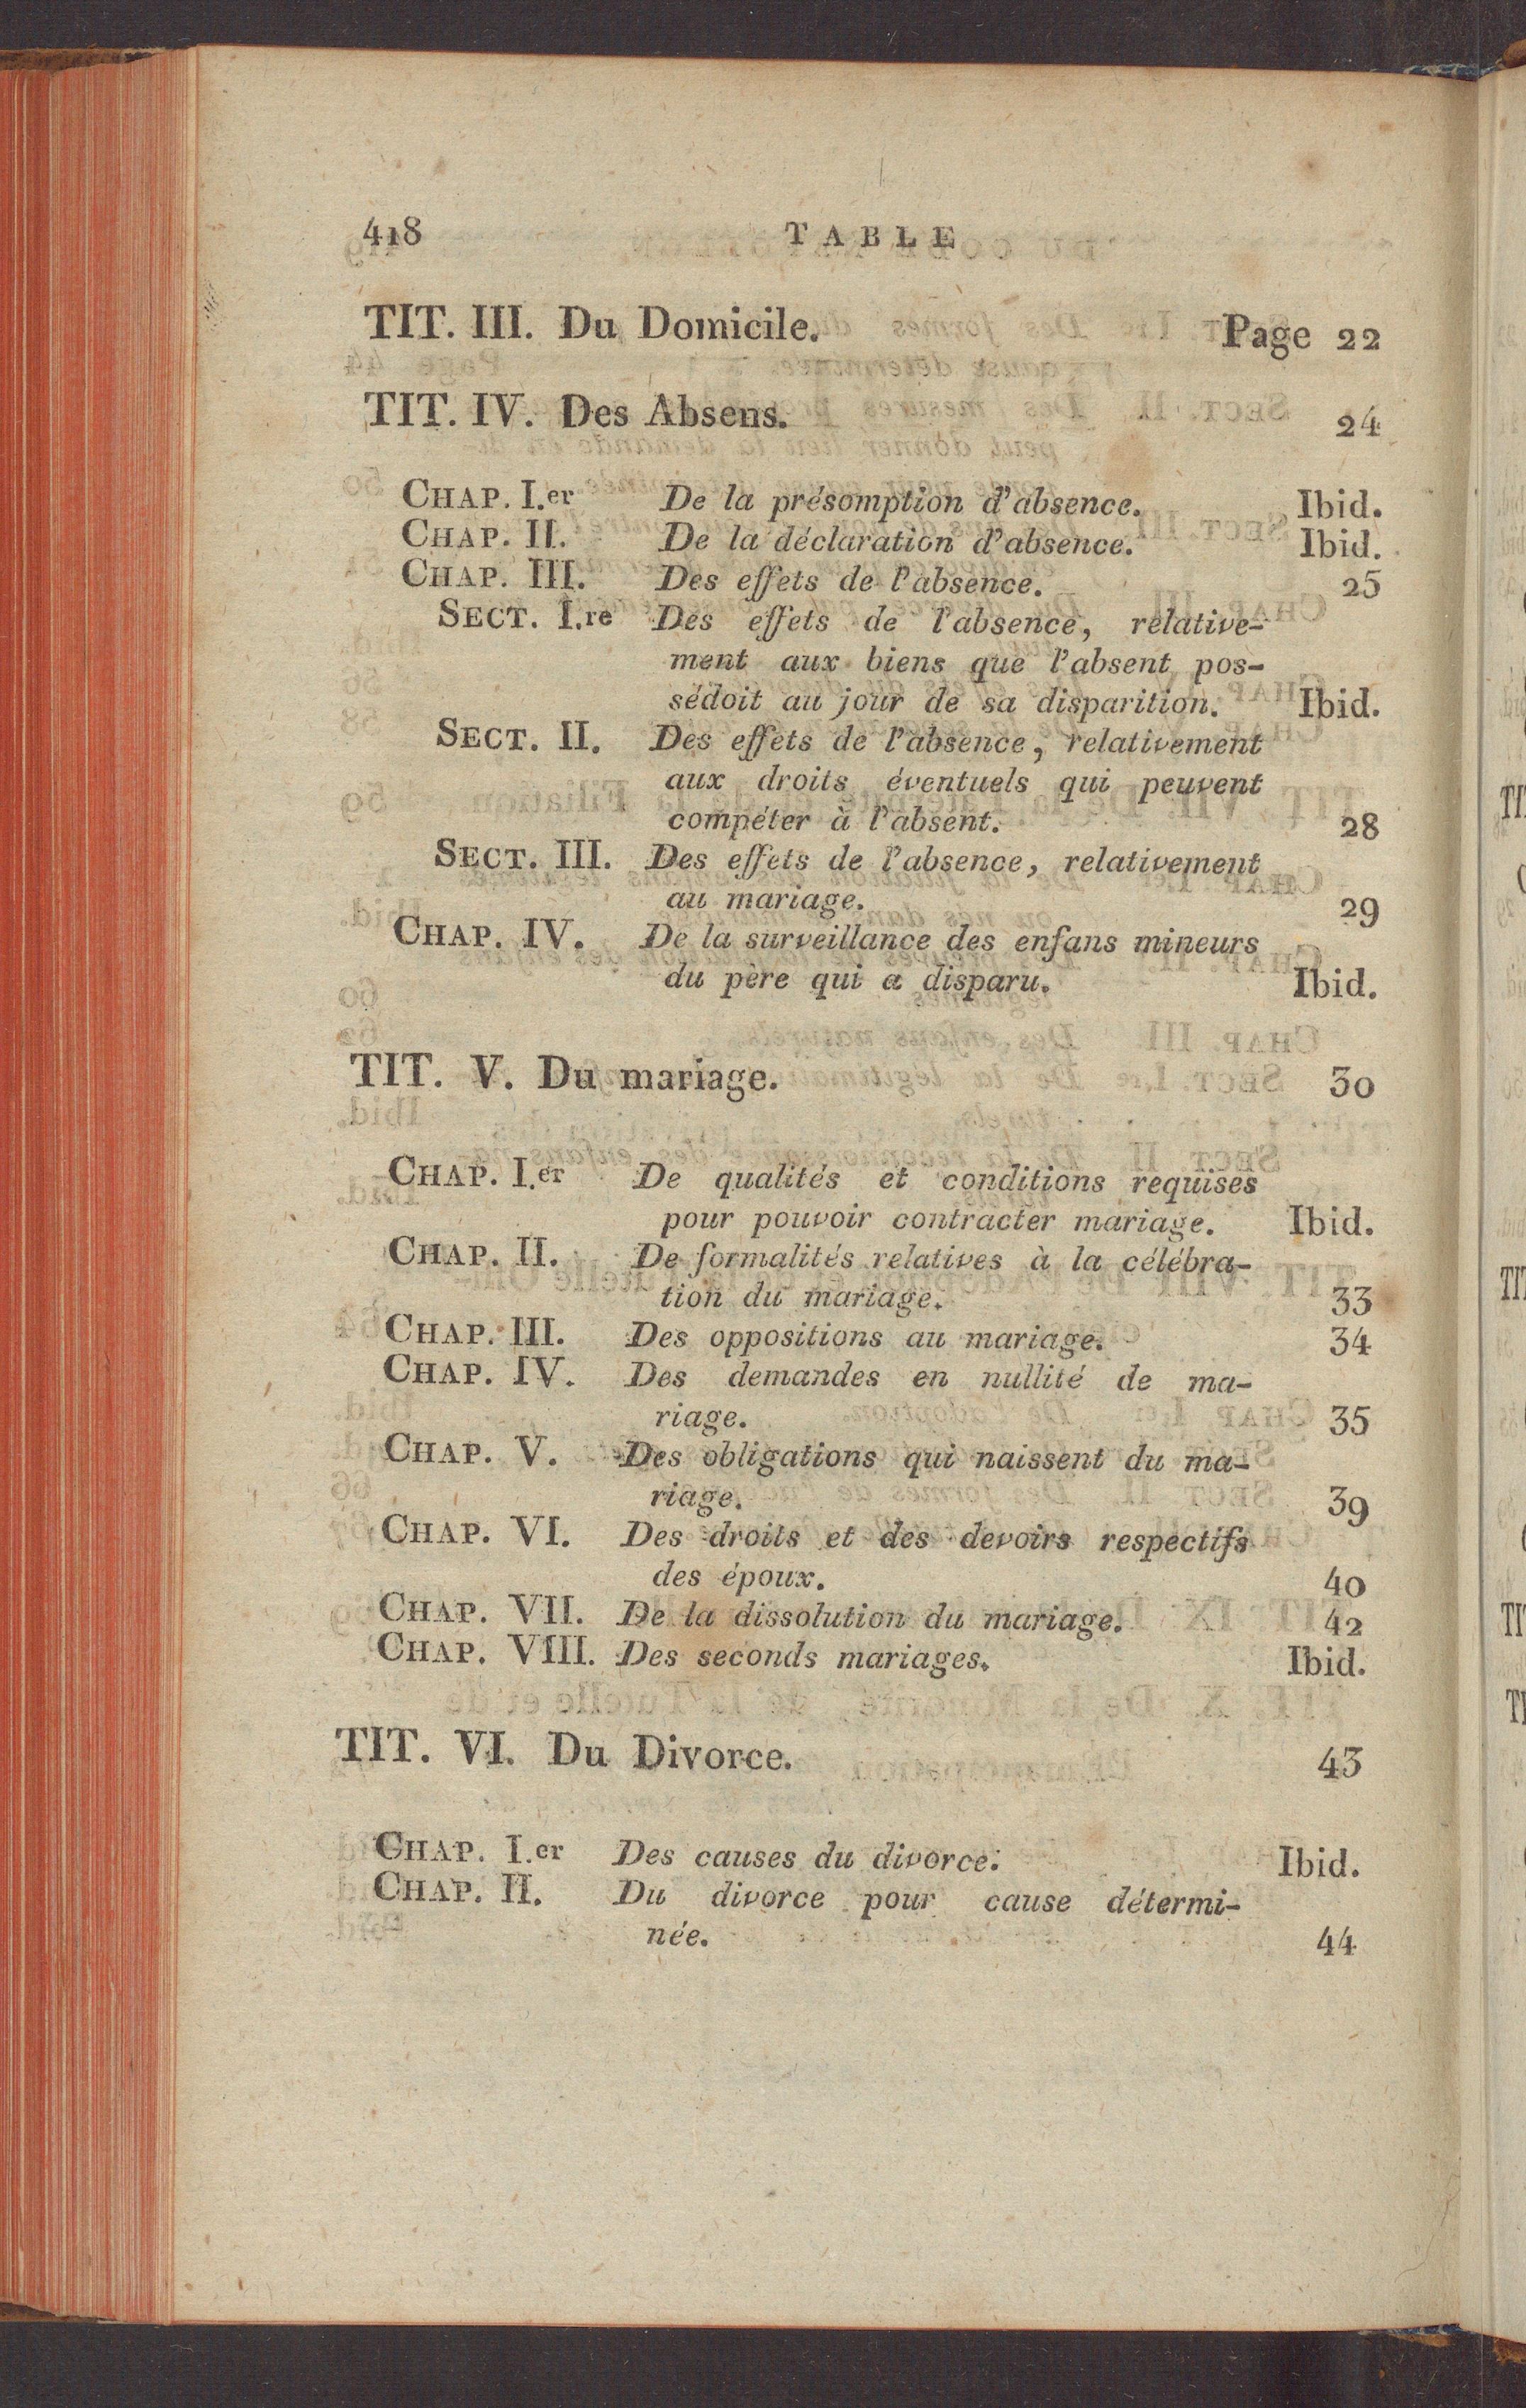 418 TABLE
TIT. III. Du Domicile. Page 22
TIT. IV. Des Absens. 24
CHAP. I.er De la présomption d'absence. Ibid.
CHAP. II. De la déclaration d'absence. Ibid.
CHAP. III. Des effets de l'absence. 25
SECT. I.re Des effets de l'absence, relative-
ment aux biens que l'absent pos-
sédoit au jour de sa disparition. Ibid.
SECT. II. Des effets de l'absence, relativement
aux droits éventuels qui peuvent
compéter à l'absent. 28
SECT. III. Des effets de l'absence, relativement
au mariage. 29
CHAP. IV. De la surveillance des enfans mineurs
du père qui a disparu. Ibid.
TIT. V. Du mariage. 30
CHAP. I.er De qualités et conditions requises
pour pouvoir contracter mariage. Ibid.
CHAP. II. De formalités relatives à la célébra-
tion du mariage. 33
CHAP. III. Des oppositions au mariage. 34
CHAP. IV. Des demandes en nullité de ma-
riage. 35
CHAP. V. Des obligations qui naissent du ma-
riage. 39
CHAP. VI. Des droits et des devoirs respectifs
des époux. 40
CHAP. VII. De la dissolution du mariage. 42
CHAP. VIII. Des seconds mariages. Ibid.
TIT. VI. Du Divorce. 43
CHAP. I.er Des causes du divorce. Ibid.
CHAP. II. Du divorce pour cause détermi-
née. 44